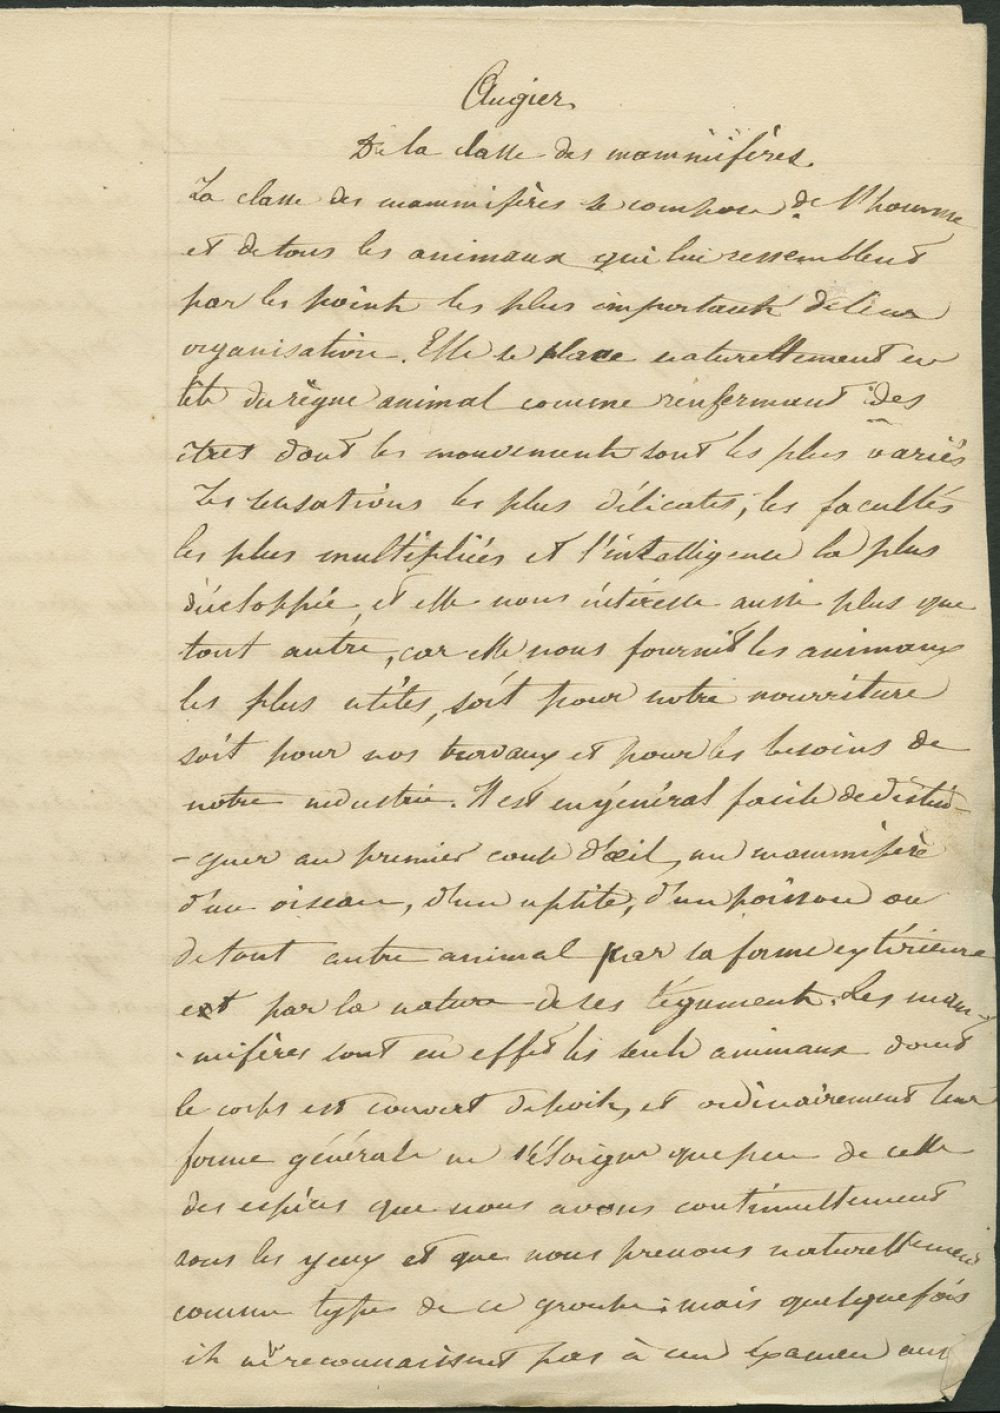 Augier.
De la classe des mammifères.
La classe des mammifères se compose de l'homme
et de tous les animaux qui lui ressemblent
par les points les plus importants de leur
organisation. Elle se place naturellement en
tête du règne animal comme renfermant des
êtres dont les mouvements sont les plus variés
les sensations les plus délicates, les facultés
les plus multipliées et l'intelligence la plus
dévéloppée, et elle nous intéresse aussi plus que
tout autre, car elle nous fournit les animaux
les plus utiles, soit pour notre nourriture
soit pour nos travaux et pour les besoins de
notre industrie. Il est en général facile de distin-
-guer au premier coup d'œil, un mammifère
d'un oiseau, d'un reptile, d'un poisson ou
de tout autre animal par sa forme extérieure
et par la nature de ses téguments. Les mam-
-mifères sont en effet les seuls animaux dont
le corps est couvert de poils, et ordinairement leur
forme générale ne s'éloigne que peu de celle
des espèces que nous avons continuellement
sous les yeux et que nous prenons naturellement
comme type de ce groupe; mais quelquefois
ils ne reconnaissent pas à un examen aussi